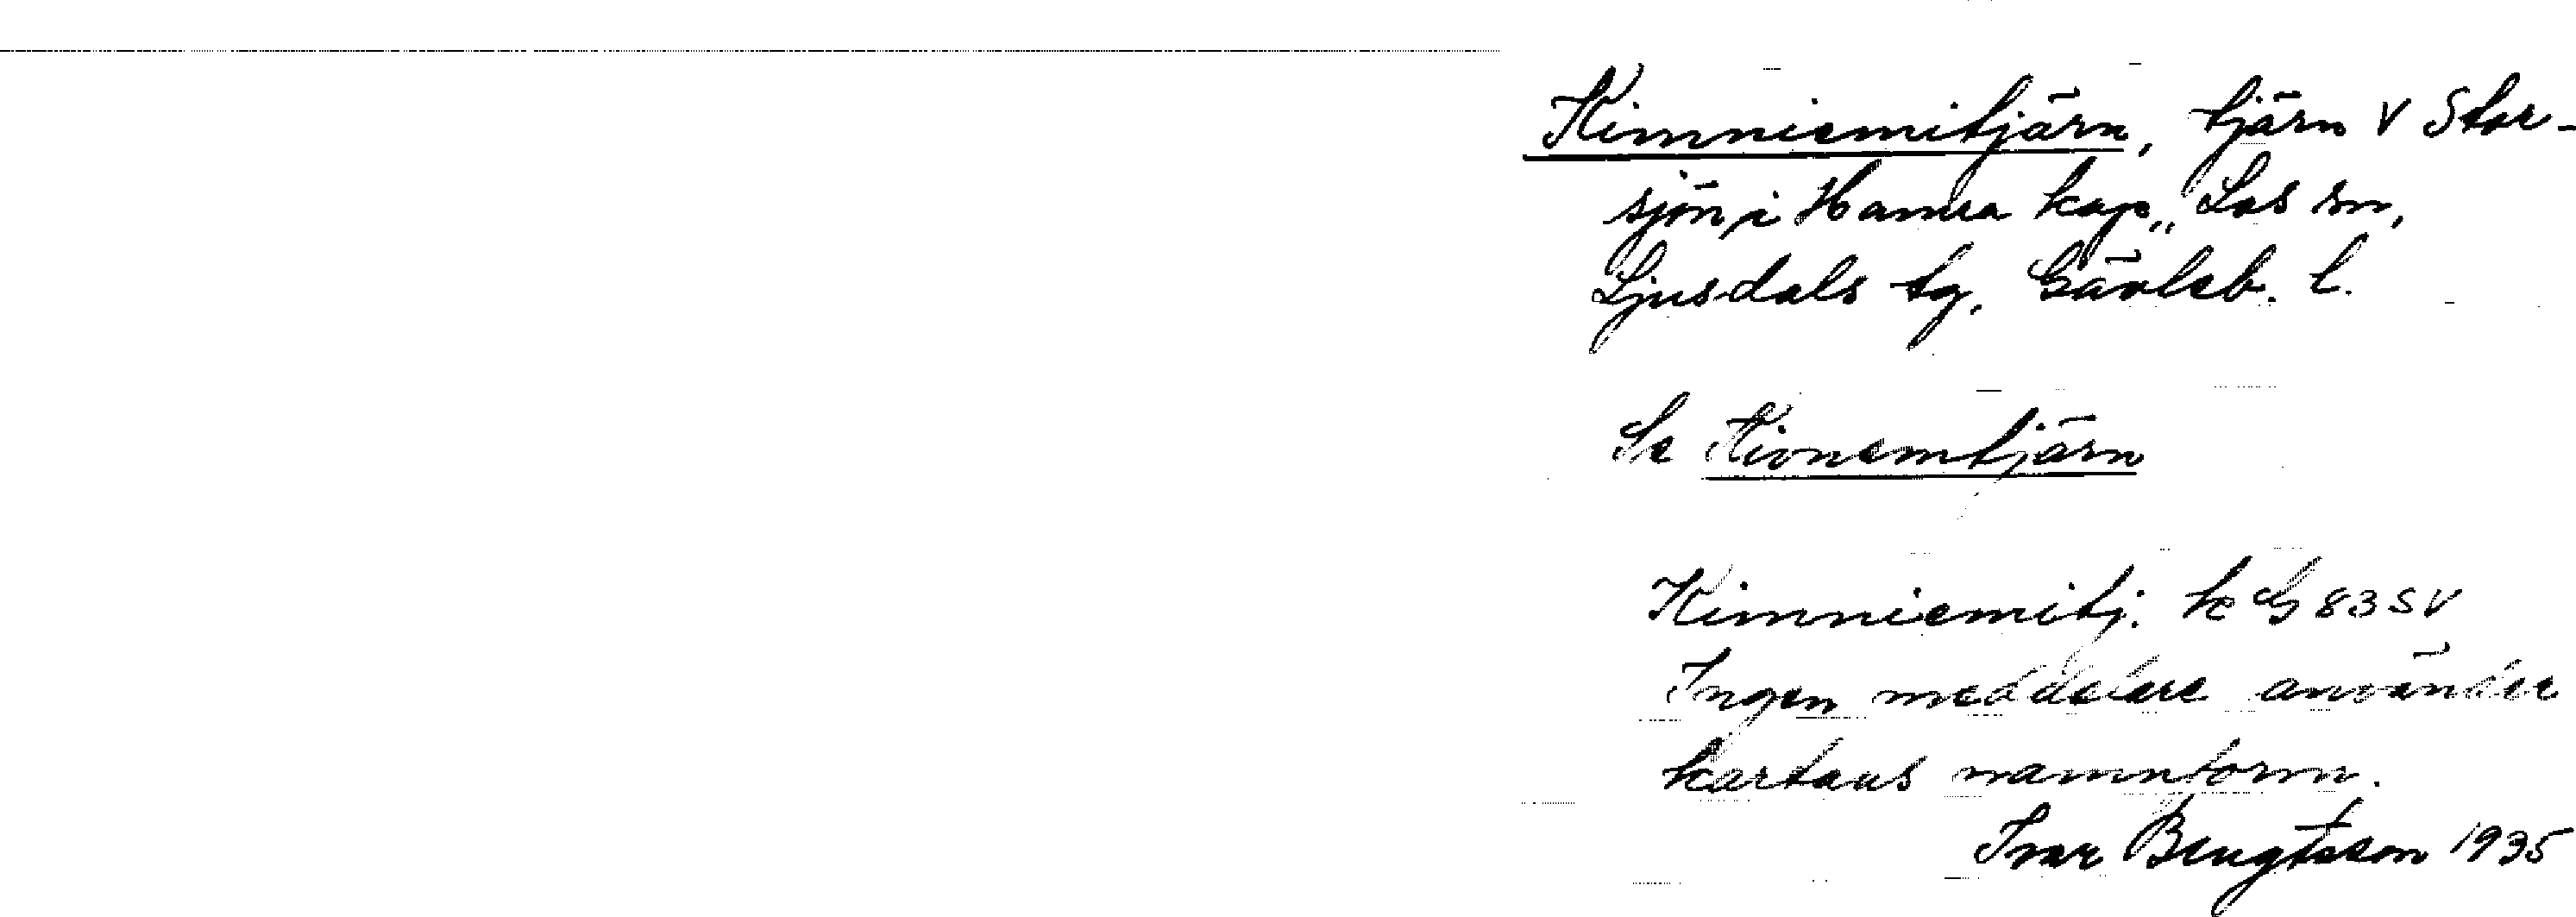 Kimniemitjärn, tjärn V Stor-
sjön, i Hamra kap., Los sn,
Ljusdals tg, Gävleb. l.
Se Kivnemtjärn
Kimniemitj. k G 83 SV
Ingen meddelare använder
kartans namnform.
Ivar Bengtsson 1935